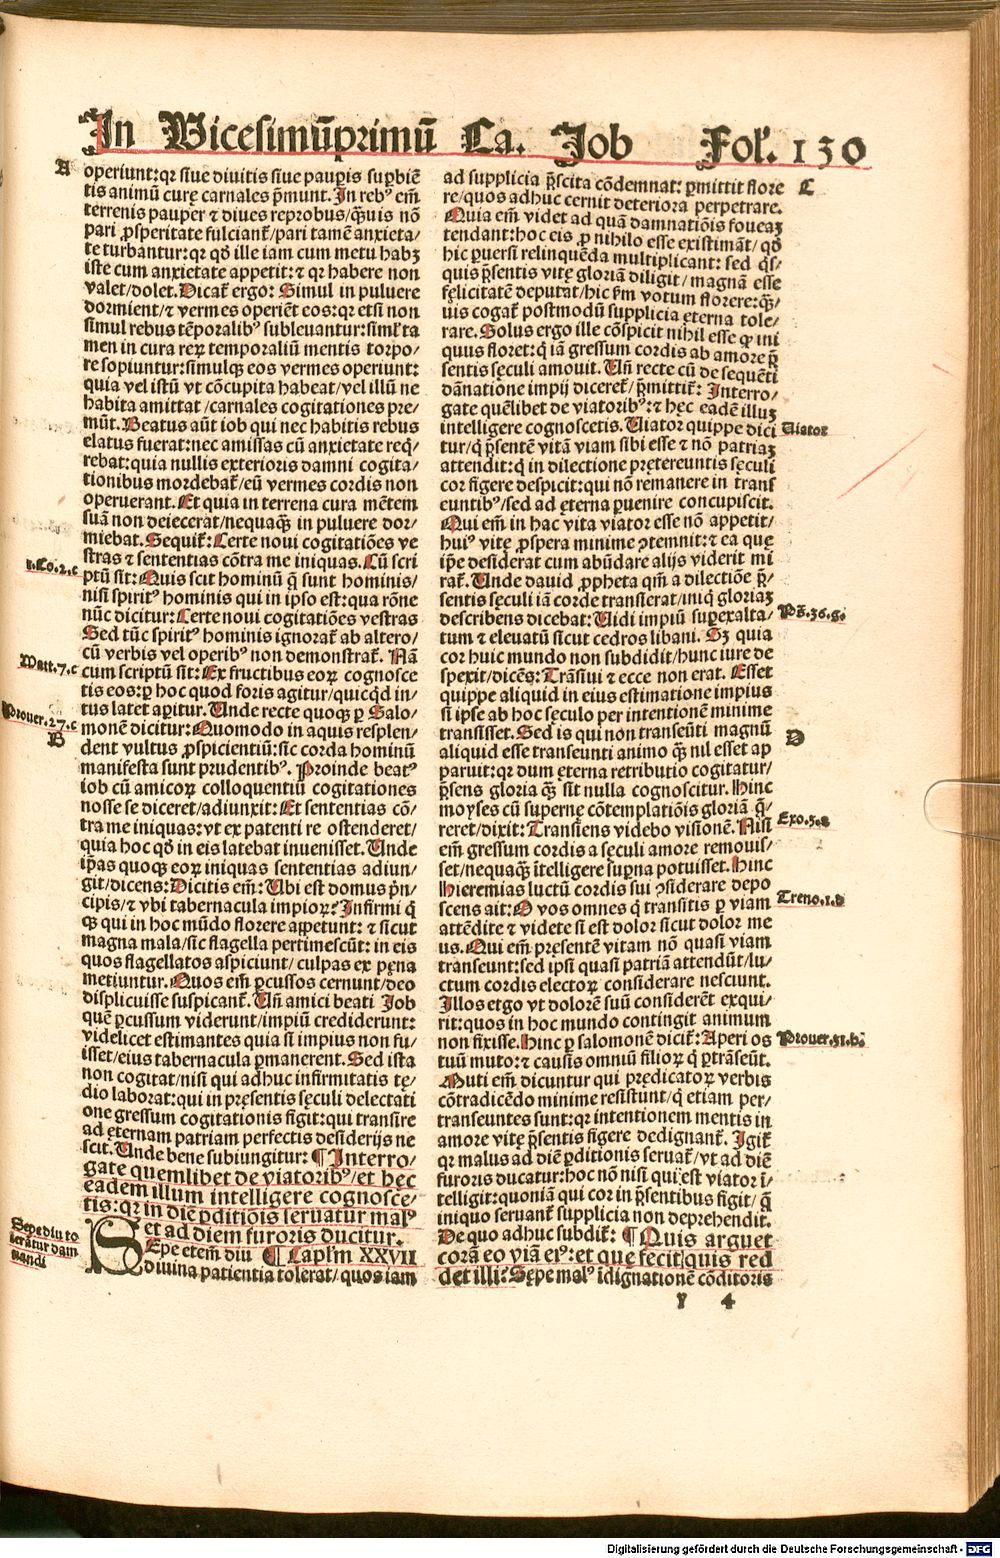 In Vicesimūprimū Ca. Job Fol'. 150
A
operiunt: qr siue diuitis siue pauꝑis suꝑbiē
tis animū curę carnales p̄munt. In rebꝰ em̄
terrenis pauper ⁊ diues reprobus/q̄uis nō
pari ꝓsperitate fulciant᷑/pari tamē anxieta/
te turbantur: qr qđ ille iam cum metu habꝫ
iste cum anxietate appetit: ⁊ qr habere non
valet/dolet. Dicat᷑ ergo: Simul in puluere
dormient/⁊ vermes operiēt eos: qr etsi non
simul rebus tēporalibꝰ subleuantur: siml' ta
men in cura reꝝ temporaliū mentis torpo/
re sopiuntur: simulqꝫ eos vermes operiunt:
quia vel istū vt cōcupita habeat/vel illū ne
habita amittat/carnales cogitationes pre/
mūt. Beatus aūt iob qui nec habitis rebus
elatus fuerat: nec amissas cū anxietate reꝗ/
rebat: quia nullis exterioris damni cogita/
tionibus mordebat᷑/eū vermes cordis non
operuerant. Et quia in terrena cura mētem
suā non deiecerat/nequaq̄ in puluere dor/
miebat. Sequit᷑: Certe noui cogitatiōes ve
stras ⁊ sententias cōtra me iniquas. Cū scri
1.Co.2.c
ptū sit: Quis scit hominū q̄ sunt hominis/
nisi spiritꝰ hominis qui in ipso est: qua rōne
nūc dicitur: Certe noui cogitatiōes vestras
Sed tūc spiritꝰ hominis ignorat᷑ ab altero/
cū verbis vel operibꝰ non demonstrat᷑. Nā
Matt.7.c
cum scriptū sit: Ex fructibus eoꝝ cognosce
tis eos: ꝑ hoc quod foris agitur/quicꝗd in/
tus latet aꝑitur. Unde recte quoqꝫ ꝑ Salo/
Prouer.27.c
monē dicitur: Quomodo in aquis resplen/
B
dent vultus ꝓspicientiū: sic corda hominū
manifesta sunt prudentibꝰ. Proinde beatꝰ
iob cū amicoꝝ colloquentiū cogitationes
nosse se diceret/adiunxit: Et sententias cō/
tra me iniquas: vt ex patenti re ostenderet/
quia hoc qđ in eis latebat inuenisset. Unde
ip̄as quoqꝫ eoꝝ iniquas sententias adiun/
git/dicens: Dicitis em̄: Ubi est domus p̄n/
cipis/⁊ vbi tabernacula impioꝝ? Infirmi q̇
qꝫ qui in hoc mūdo florere aꝑpetunt: ⁊ sicut
magna mala/sic flagella pertimescūt: in eis
quos flagellatos aspiciunt/culpas ex pęna
metiuntur. Quos em̄ ꝑcussos cernunt/deo
displicuisse suspicant᷑. Un̄ amici beati Job
quē ꝑcussum viderunt/impiū crediderunt:
videlicet estimantes quia si impius non fu/
isset/eius tabernacula ꝑmanerent. Sed ista
non cogitat/nisi qui adhuc infirmitatis tę/
dio laborat: qui in pręsentis sęculi delectati
one gressum cogitationis figit: qui transire
ad ęternam patriam perfectis desiderijs ne
scit. Unde bene subiungitur: ¶ Interro/
gate quemlibet de viatoribꝰ/et hęc
eadem illum intelligere cognosce/
tis: qr in diē ꝑditiōis seruatur malꝰ
et ad diem furoris ducitur.
Sepe diu to
leratur dam
nandi
SEpe etem̄ diu ¶ Capl'm XXVII
diuina patientia tolerat/quos iam
ad supplicia p̄scita cōdemnat: ꝑmittit flore
C
re/quos adhuc cernit deteriora perpetrare.
Quia em̄ videt ad quā damnatiōis foueaꝫ
tendant: hoc eis ꝓ nihilo esse existimāt/qđ
hic ꝑuersi relinquēda multiplicant: sed ꝗs/
quis p̄sentis vitę gloriā diligit/magnā esse
fęlicitatē deputat/hic s̄m votum florere: q̄/
uis cogat᷑ postmodū supplicia ęterna tole/
rare. Solus ergo ille cōspicit nihil esse ꝙ ini
quus floret: ꝗ iā gressum cordis ab amore p̄
sentis sęculi amouit. Un̄ recte cū de sequēti
dānatione impij diceret᷑/p̄mittit᷑: Interro/
gate quēlibet de viatoribꝰ: ⁊ hęc eadē illuꝫ
intelligere cognoscetis. Uiator quippe dici
Uiator
tur/ꝗ p̄sentē vitā viam sibi esse ⁊ nō patriaꝫ
attendit: ꝗ in dilectione prętereuntis sęculi
cor figere despicit: qui nō remanere in trans
euntibꝰ/sed ad ęterna ꝑuenire concupiscit.
Qui em̄ in hac vita viator esse nō appetit/
huiꝰ vitę ꝓspera minime ꝯtemnit: ⁊ ea quę
ip̄e desiderat cum abūdare alijs viderit mi
rat᷑. Unde dauid ꝓpheta qm̄ a dilectiōe p̄/
sentis sęculi iā corde transierat/iniꝗ gloriaꝫ
describens dicebat: Uidi impiū suꝑexalta/
Ps̄.36.g.
tum ⁊ eleuatū sicut cedros libani. Sꝫ quia
cor huic mundo non subdidit/hunc iure de
spexit/dicēs: Trāsiui ⁊ ecce non erat. Esset
quippe aliquid in eius estimatione impius
si ipse ab hoc sęculo per intentionē minime
transisset. Sed is qui non transeūti magnū
D
aliquid esse transeunti animo q̄ nil esset ap
paruit: qr dum ęterna retributio cogitatur/
p̄sens gloria q̄ sit nulla cognoscitur. Hinc
moyses cū supernę cōtemplatiōis gloriā q̄/
reret/dixit: Transiens videbo visionē. Nisi
Exo.3.a
em̄ gressum cordis a sęculi amore remouis/
set/nequaq̄ ītelligere suꝑna potuisset. Hinc
Hieremias luctū cordis sui ꝯsiderare depo
scens ait: O vos omnes ꝗ transitis ꝑ viam
Treno.1.d
attēdite ⁊ videte si est dolor sicut dolor me
us. Qui em̄ pręsentē vitam nō quasi viam
transeunt: sed ipsi quasi patriā attendūt/lu/
ctum cordis electoꝝ considerare nesciunt.
Illos ergo vt dolorē suū considerēt exqui/
rit: quos in hoc mundo contingit animum
non fixisse. Hinc ꝑ salomonē dicit᷑: Aperi os
Prouer.31.b.
tuū muto: ⁊ causis omniū filioꝝ ꝗ ꝑtrāseūt.
Muti em̄ dicuntur qui prędicatoꝝ verbis
cōtradicēdo minime resistunt/ꝗ etiam per/
transeuntes sunt: qr intentionem mentis in
amore vitę p̄sentis figere dedignant᷑. Igit᷑
qr malus ad diē ꝑditionis seruat᷑/vt ad diē
furoris ducatur: hoc nō nisi qui est viator ī/
telligit: quoniā qui cor in p̄sentibus figit/q̄
iniquo seruant᷑ supplicia non deprehendit.
De quo adhuc subdit᷑: ¶ Quis arguet
corā eo viā eiꝰ: et quę fecit quis red
det illi? Sępe malꝰ īdignationē cōditoris
y 4
Digitalisierung gefördert durch die Deutsche Forschungsgemeinschaft - DFG